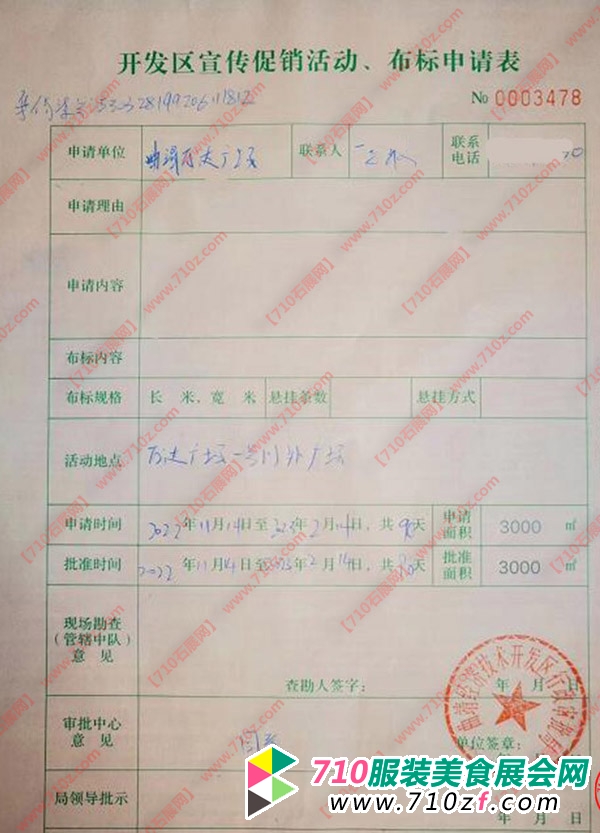 开发区宣传促销活动、布标申请表
No 0003478
申请单位 曲靖万达广场 联系人 联系电话
申请理由
申请内容
布标内容
布标规格 长 米、宽 米 悬挂条数 悬挂方式
活动地点 万达广场一号门外广场
申请时间 2022年11月14日至2023年2月14日，共90天 申请面积 3000 ㎡
批准时间 2022年11月14日至2023年2月14日，共90天 批准面积 3000 ㎡
现场勘查(管辖中队)意见
查勘人签字： 年 月 日
审批中心意见 同意
单位签章：
局领导批示
710服装美食展会网
www.710zf.com
【710石展网】 www.710z.com